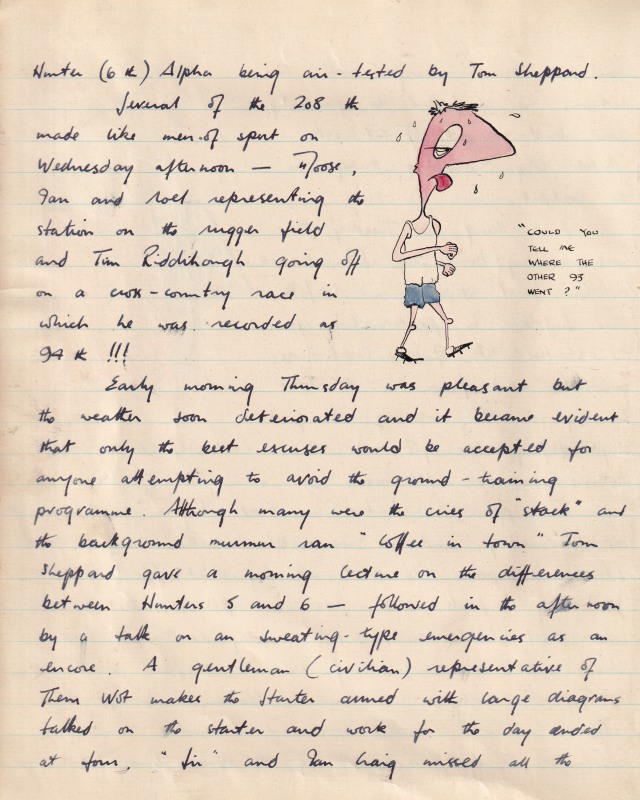 Hunter (6 th) Alpha being air-tested by Tom Sheppard.
Several of the 208 th
made like men of sport on
Wednesday afternoon — Moose,
Ian and Noel representing the
station on the rugger field
and Tim Riddihough going off
on a cross-country race in
which he was recorded as
94 th !!!
"COULD YOU
TELL ME
WHERE THE
OTHER 93
WENT ?"
Early morning Thursday was pleasant but
the weather soon deteriorated and it became evident
that only the best excuses would be accepted for
anyone attempting to avoid the ground-training
programme. Although many were the cries of "stack" and
the background murmur ran "Coffee in town" Tom
Sheppard gave a morning lecture on the differences
between Hunters 5 and 6 — followed in the afternoon
by a talk on an sweating-type emergencies as an
encore. A gentleman (civilian) representative of
Them Wot makes the Starter armed with large diagrams
talked on the starter and work for the day ended
at four. "Jir" and Ian Craig missed all the